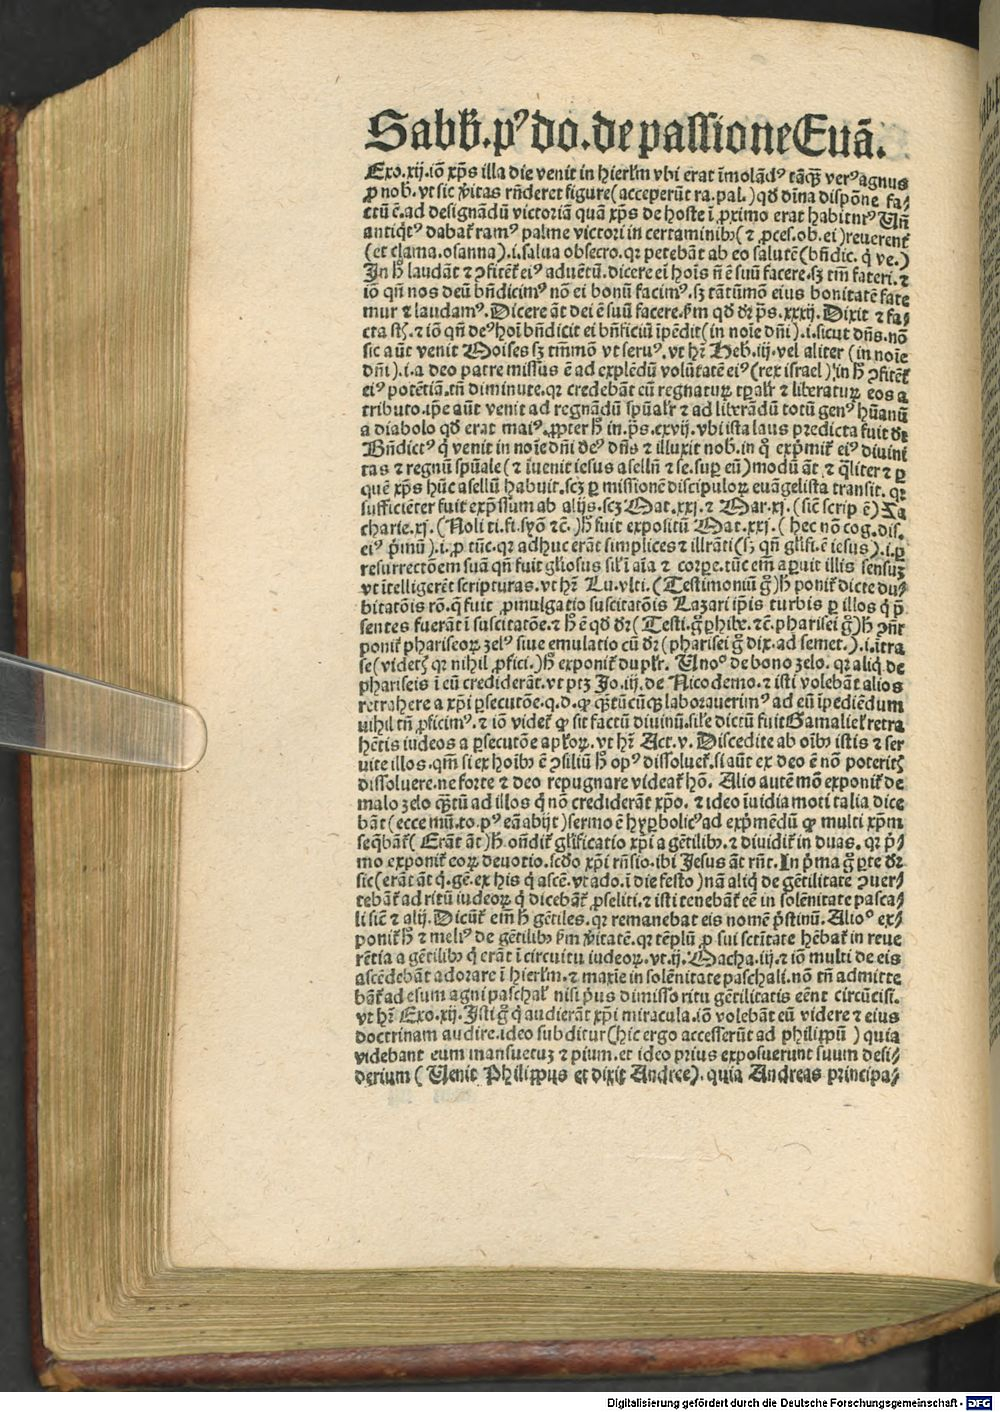 Sabb̄. pꝰ do. de passione Euā.
Exo. xij. iō xp̄s illa die venit in hierl̄m vbi erat īmolādꝰ tāq̄ꝫ verꝰ agnus
ꝓ nob̄. vt sic v̄itas rn̄deret figure (acceperūt ra. pal.) qđ dīna dispōne fa⸗
ctū ē. ad designādū victoriā quā xp̄s de hoste ī ꝓximo erat habiturꝰ Vn̄
antiqͥtꝰ dabat̄ ramꝰ palme victori in certaminibꝰ (⁊ ꝓces. ob. ei) reuerent̄
(et clama. osanna). i. salua obsecro. qꝛ petebāt ab eo salutē (bn̄dic. q̇ ve.)
In ħ laudāt ⁊ ꝯfitēt̄ eiꝰ aduētū. dicere ei hoīs n̄ ē suū facere. sꝫ tm̄ fateri. ⁊
iō qn̄ nos deū bn̄dicimꝰ nō ei bonū facimꝰ. sꝫ tātūmō eius bonitatē fate
mur ⁊ laudamꝰ. Dicere āt dei ē suū facere. ẜm qđ dꝛ p̄s. xxxij. Dixit ⁊ fa⸗
cta st̄. ⁊ iō qn̄ deꝰ hoī bn̄dicit ei bn̄ficiū īpēdit (in noīe dn̄i). i. sicut dn̄s. nō
sic aūt venit Moises sꝫ tm̄mō vt seruꝰ. vt hꝛ̄ Heb̄. iij. vel aliter (in noīe
dn̄i). i. a deo patre missus ē ad explēdū volūtatē eiꝰ (rex israel) in ħ ꝯfitēt̄
eiꝰ potētiā. tn̄ diminute. qꝛ credebāt eū regnaturꝫ tꝑalr̄ ⁊ liberaturꝫ eos a
tributo. ip̄e aūt venit ad regnādū spūalr̄ ⁊ ad liberādū totū genꝰ hūanū
a diabolo qđ erat maiꝰ. ꝓpter ħ in. p̄s. cxvij. vbi ista laus predicta fuit dꝛ
Bn̄dictꝰ q̇ venit in noīe dn̄i deꝰ dn̄s ⁊ illuxit nob̄. in q̊ exp̄mit̄ eiꝰ diuini
tas ⁊ regnū spūale (⁊ īuenit iesus asellū ⁊ se. suꝑ eū) modū āt ⁊ q̄liter ⁊ ꝑ
quē xp̄s hūc asellū habuit. scꝫ ꝑ missionē discipuloꝝ euāgelista transit. qꝛ
sufficiēter fuit exp̄ssum ab alijs. scꝫ Mat. xxj. ⁊ Mar. xj. (sic̄ scrip ē) Za
charie. xj. (Noli ti. fi. syō ⁊c̄.) ħ fuit expositū Mat. xxj. (hec nō cog. dis.
eiꝰ p̄mū). i. ꝓ tūc. qꝛ adhuc erāt simplices ⁊ illrāti (sꝫ qn̄ glīfi. ē iesus). i. ꝑ
resurrectōem suā qn̄ fuit gl̄iosus sil̄ ī aīa ⁊ corꝑe. tūc em̄ aꝑuit illis sensuꝫ
vt ītelligerēt scripturas. vt hꝛ̄ Lu. vlti. (Testimoniū g̊) ħ ponit̄ dicte du⸗
bitatōis rō. q̄ fuit ꝓmulgatio suscitatōis Lazari ip̄is turbis ꝑ illos q̇ p̄
sentes fuerāt ī suscitatōe. ⁊ ħ ē qđ dꝛ (Testi. g̊ ꝑhibe. ⁊c̄. pharisei g̊) ħ ꝯn̄r
ponit̄ phariseoꝝ zelꝰ siue emulatio cū dꝛ (pharisei g̊ dix. ad semet.). i. ītra
se (videtꝭ qꝛ nihil ꝓfici.) ħ exponit̄ duplr̄. Vnoº de bono zelo. qꝛ aliq̇ de
phariseis ī eū crediderāt. vt ptꝫ Jo. iij. de Nicodemo. ⁊ isti volebāt alios
retrahere a xp̄i ꝑsecutōe. q. d. ꝙ q̄ꝫtūcūqꝫ laborauerimꝰ ad eū īpediēdum
nihil tn̄ ꝓficimꝰ. ⁊ iō videt̄ ꝙ sit factū diuinū. sil̄e dictū fuit Gamaliel̄ retra
hētis iudeos a ꝑsecutōe apl̄oꝝ. vt hꝛ̄ Act. v. Discedite ab oībꝰ istis ⁊ ser
uite illos. qm̄ si ex hoībꝰ ē ꝯsiliū ħ opꝰ dissoluet̄. si aūt ex deo ē nō poteritꝭ
dissoluere. ne forte ⁊ deo repugnare videat̄ hō. Alio autē mō exponit̄ de
malo zelo q̄ꝫtū ad illos q̇ nō crediderāt xp̄o. ⁊ ideo īuidia moti talia dice
bāt (ecce mū. to. pꝰ eā abijt) sermo ē hyꝑbolicꝰ ad exp̄mēdū ꝙ multi xp̄m
seq̄bāt̄ (Erāt āt) ħ on̄dit̄ gl̄ificatio xp̄i a gētilibꝰ. ⁊ diuidit̄ in duas. qꝛ p̄⸗
mo exponit̄ eoꝝ deuotio. scđo xp̄i rn̄sio. ibi Jesus āt rn̄t. In p̄ma g̊ ꝑte dꝛ
sic (erāt āt q̇. gē. ex his q̇ ascē. vt ado. ī die festo) nā aliq̇ de gētilitate ꝯuer⸗
tebāt̄ ad ritū iudeoꝝ q̇ dicebāt̄ ꝓseliti. ⁊ isti tenebāt̄ eē in solēnitate pasca⸗
li sic̄ ⁊ alij. Dicūt̄ em̄ ħ gētiles. qꝛ remanebat eis nomē p̄stinū. Alioº ex⸗
ponit̄ ħ ⁊ meliꝰ de gētilibꝰ ẜm v̄itatē. qꝛ tēplū ꝓ sui sctītate hēbat̄ in reue
rētia a gētilibꝰ q̇ erāt ī circuitu iudeoꝝ. vt. ij. Macha. iij. ⁊ iō multi de eis
ascēdebāt adorare ī hierl̄m. ⁊ maxīe in solēnitate paschali. nō tn̄ admitte
bāt̄ ad esum agni paschal̄ nisi p̄us dimisso ritu gētilitatis eēnt circūcisi.
vt hꝛ̄ Exo. xij. Isti g̊ q̇ audierāt xp̄i miracula. iō volebāt eū videre ⁊ eius
doctrinam audire. ideo subditur (hic ergo accesserūt ad philippū ) quia
videbant eum mansuetuꝫ ⁊ pium. et ideo prius exposuerunt suum desi⸗
derium (Venit Philippus et dixit Andree). quia Andreas principa⸗
Digitalisierung gefördert durch die Deutsche Forschungsgemeinschaft - DFG